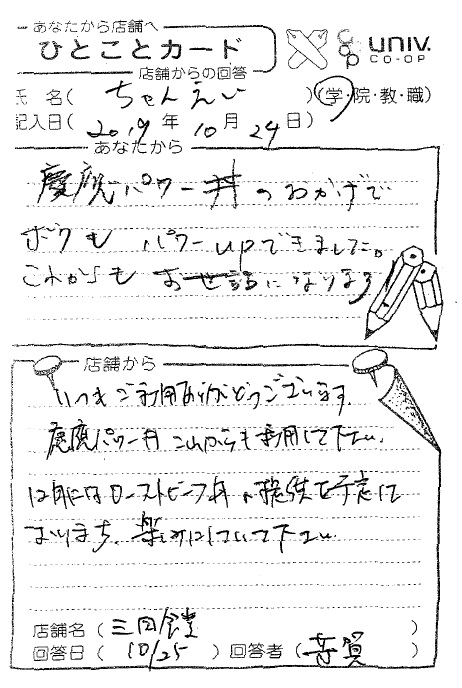 あなたから店舗へ
ひとことカード
店舗からの回答
univ.
CO-OP
氏 名(ちゃんえい)(学・院・教・職)
記入日(2019年10月24日)
あなたから
慶應パワー丼のおかげで
ボクも パワーupできました。
これからも お世話になります
店舗から
いつもご利用ありがとうございます。
慶應パワー丼これからも利用して下さい。
12月にはローストビーフ丼の提供を予定して
おります、楽しみにしていて下さい
店舗名(三田食堂)
回答日(10/25)回答者(寺賀)